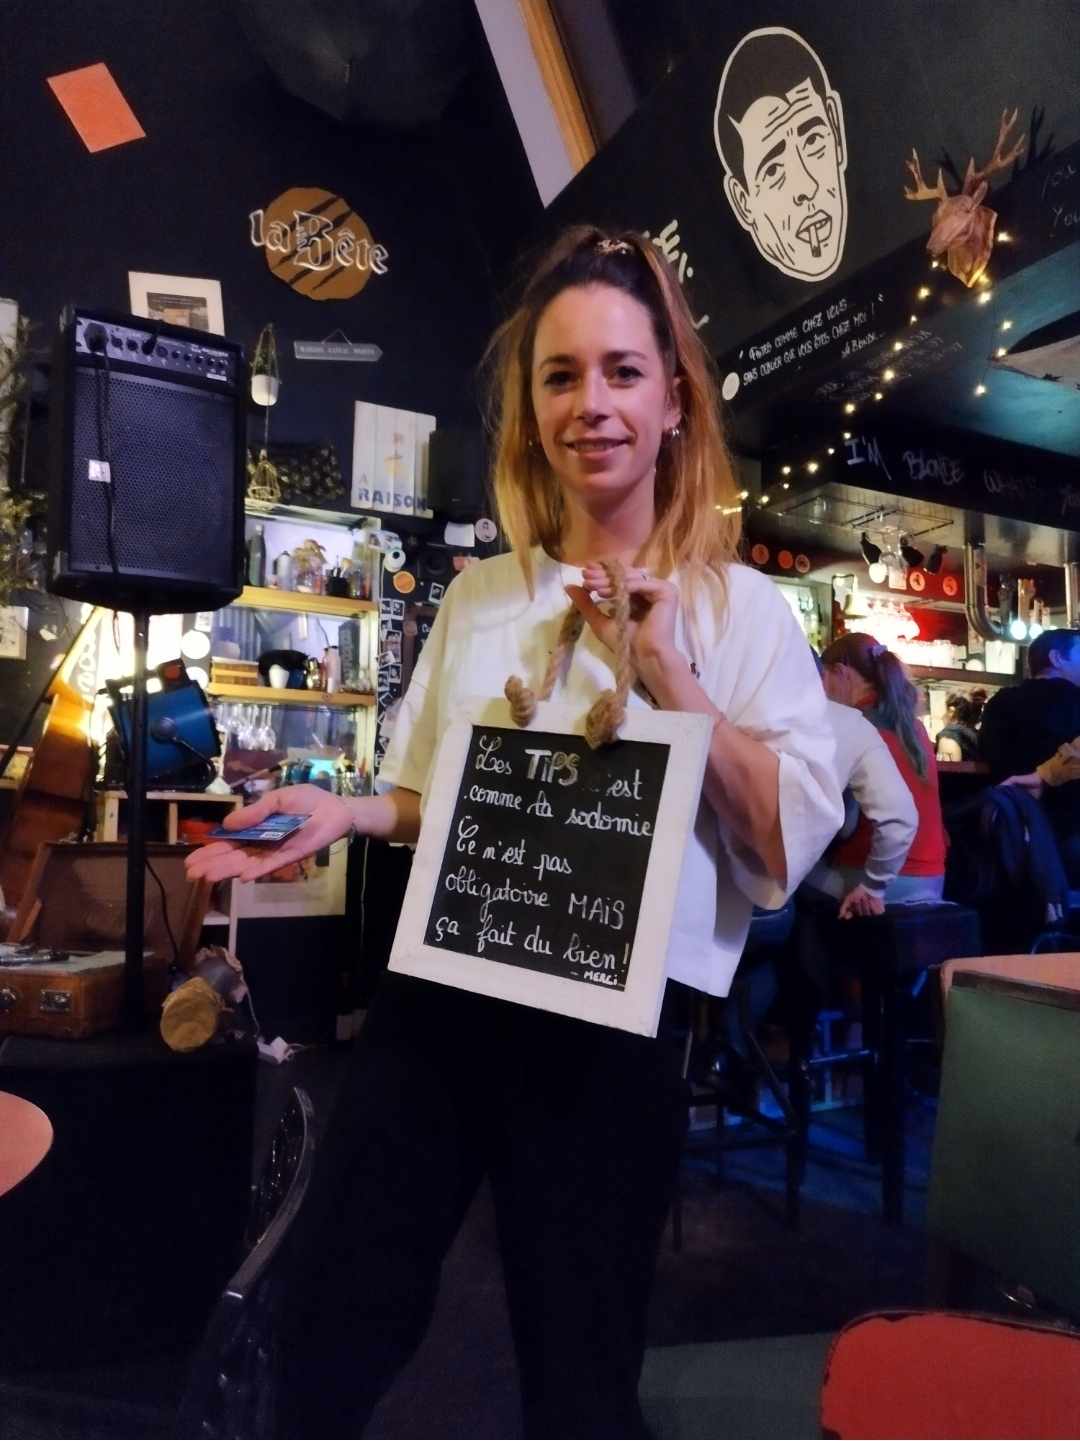 la Bête
A
RAISON
" FAITES COMME CHEZ VOUS...
SANS OUBLIER QUE VOUS ÊTES CHEZ MOI ! "
LA BLONDE...
I'M BLONDE WHAT'S
You
Les TIPS c'est
comme la sodomie
Ce n'est pas
obligatoire MAIS
ça fait du bien !
- MERCI -